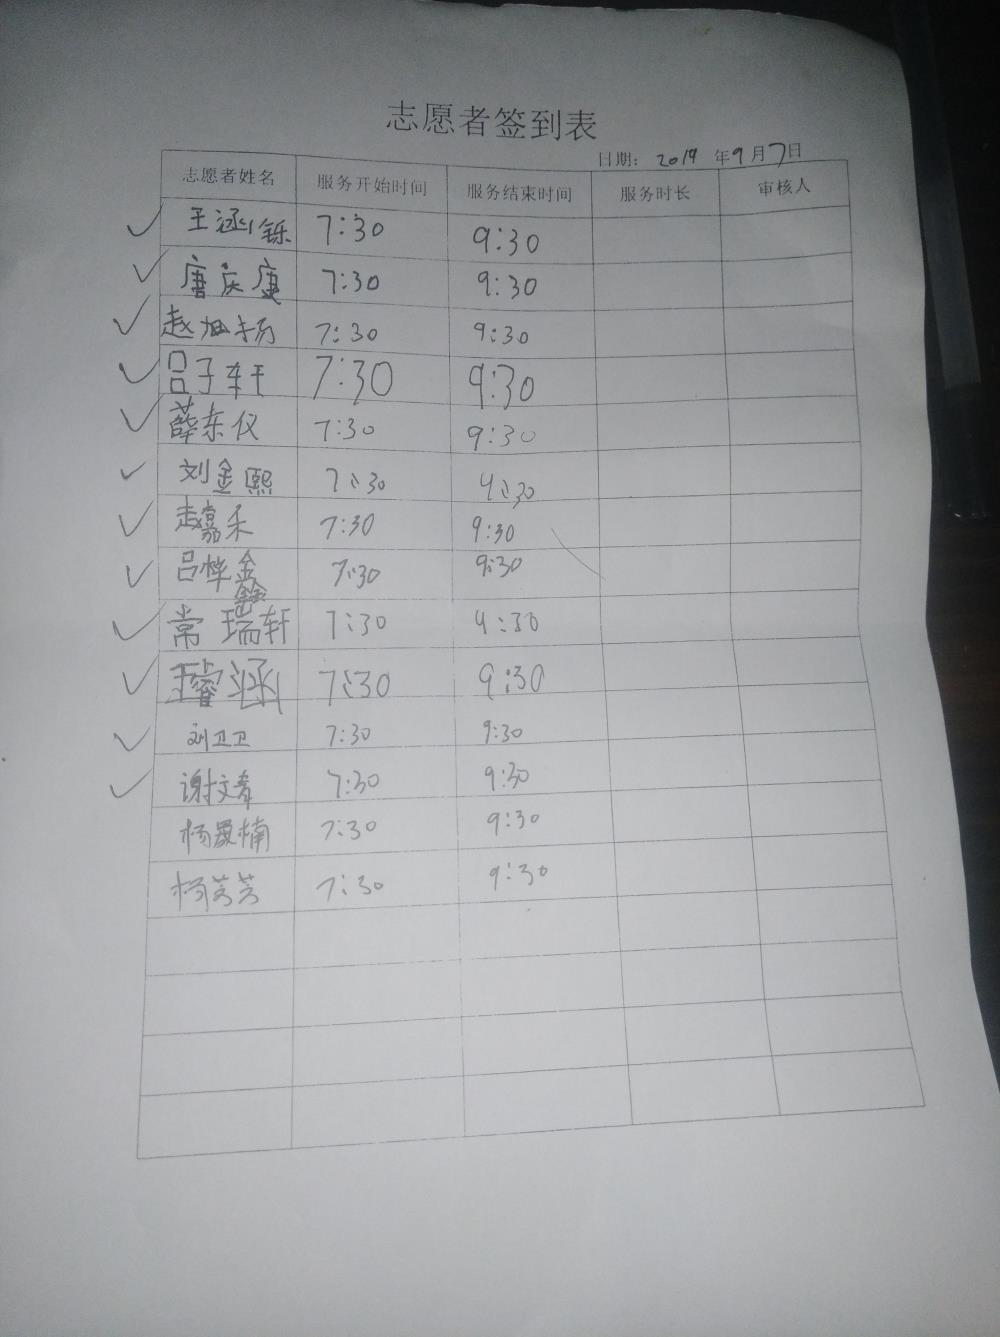 志愿者签到表
日期: 2019 年9月7日
志愿者姓名 服务开始时间 服务结束时间 服务时长 审核人
王涵铄 7:30 9:30
唐庆康 7:30 9:30
赵旭扬 7:30 9:30
吕子轩 7:30 9:30
薛东仪 7:30 9:30
刘金熙 7:30 9:30
赵嘉禾 7:30 9:30
吕烨鑫 7:30 9:30
常瑞轩 7:30 9:30
王睿涵 7:30 9:30
刘卫卫 7:30 9:30
谢文 7:30 9:30
杨晟楠 7:30 9:30
杨芳芳 7:30 9:30